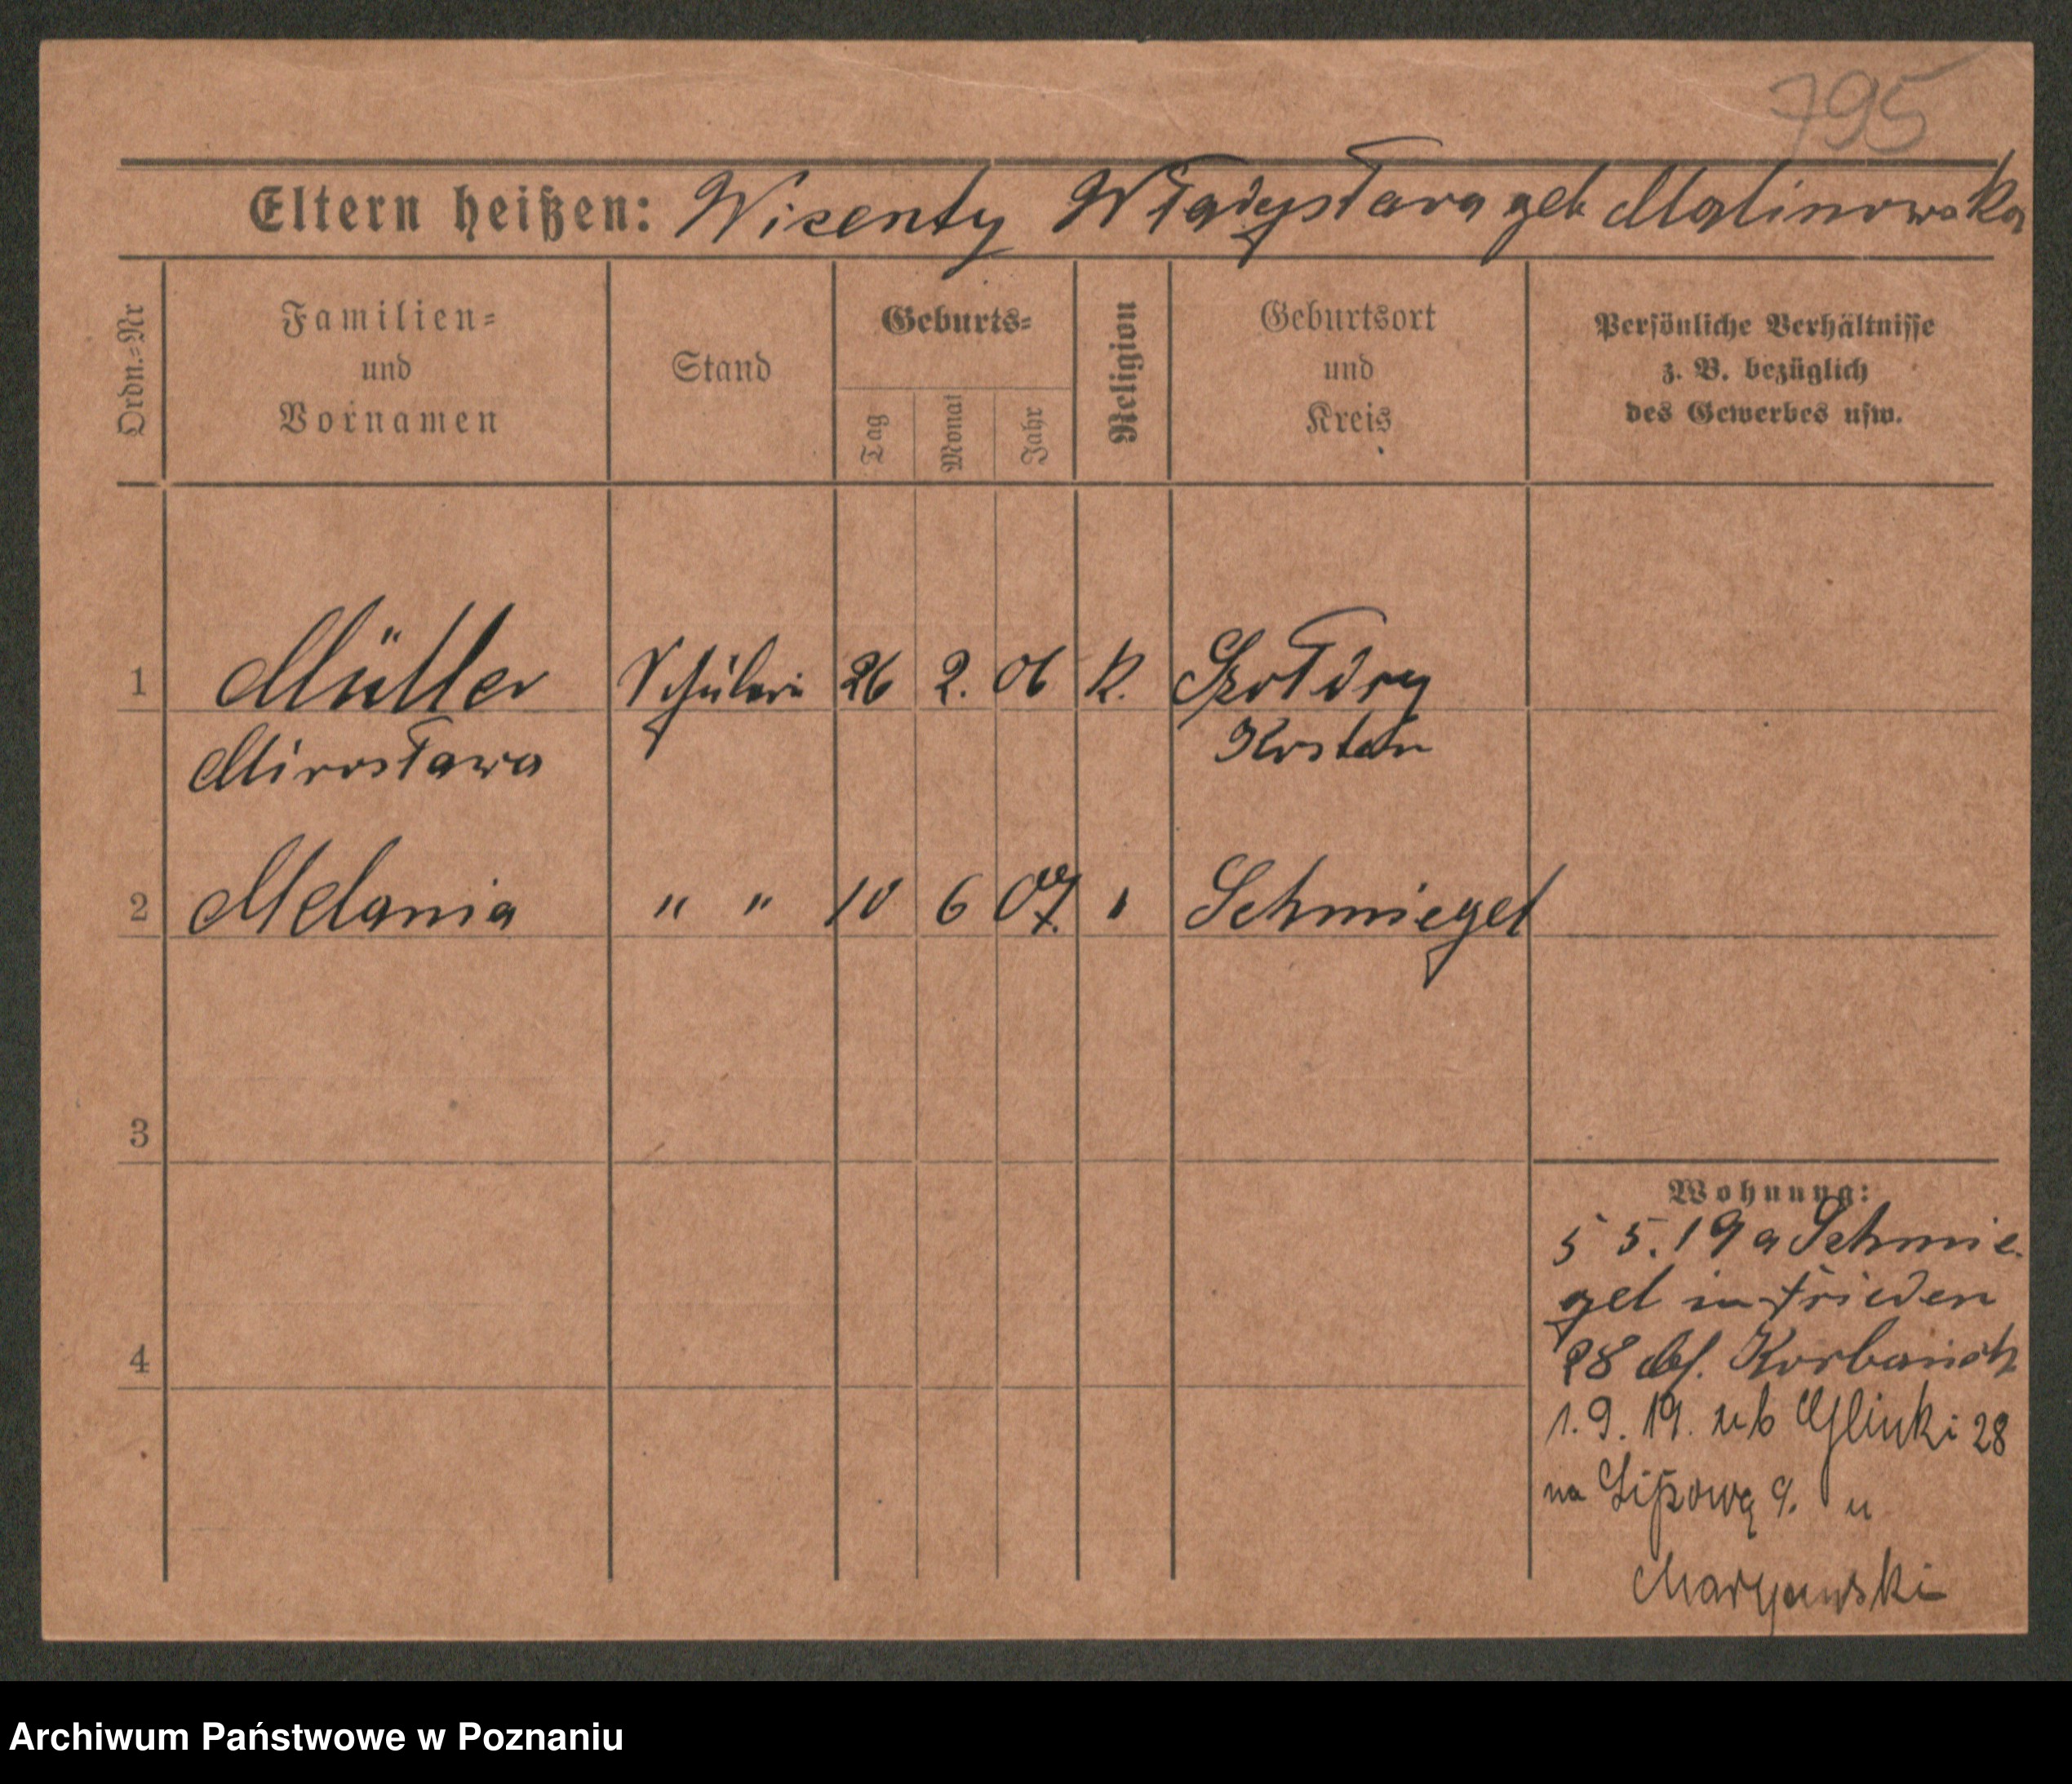 795
Eltern heißen: Wicenty Władysława geb Malinowska
Ordn.=Nr
Familien=
und
Vornamen
Stand
Geburts=
Tag
Monat
Jahr
Religion
Geburtsort
und
Kreis
Persönliche Verhältnisse
z. B. bezüglich
des Gewerbes usw.
1 Müller Schülerin 26 2. 06 K. Szołdry
Mirosława Kosten
2 Melania " " 10 6 07 " Schmiegel
3
Wohnung:
5 5. 19 a Schmie-
gel in Frieden
28 bei
4
1. 9. 19. Glinki 28
na Lipową 9. u